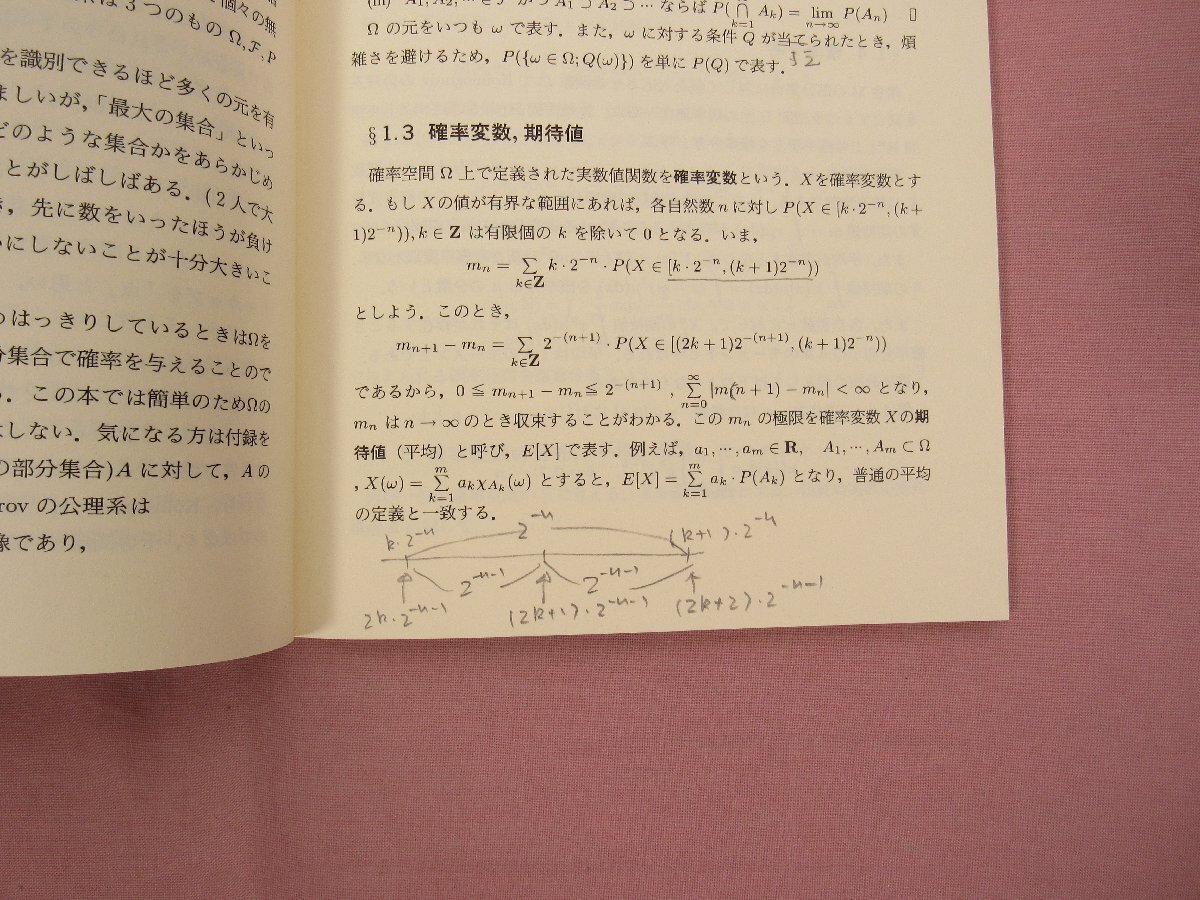 個々の無
は3つのもの Ω, ℱ, P
を識別できるほど多くの元を有
ましいが,「最大の集合」といっ
どのような集合かをあらかじめ
ことがしばしばある.(2人で大
き, 先に数をいったほうが負け
いにしないことが十分大きいこ
つはっきりしているときはΩを
分集合で確率を与えることので
る. この本では簡単のためΩの
はしない. 気になる方は付録を
の部分集合)A に対して, A の
rov の公理系は
象であり,
(iii) A₁, A₂, ⋯ ∈ ℱ かつ A₁ ⊃ A₂ ⊃ ⋯ ならば P(⋂_{k=1} A_k) = lim_{n→∞} P(A_n) ▯
Ω の元をいつも ω で表す. また, ω に対する条件 Q が当てられたとき, 煩
雑さを避けるため, P({ω ∈ Ω; Q(ω)}) を単に P(Q) で表す.
§1.3 確率変数, 期待値
確率空間 Ω 上で定義された実数値関数を確率変数という. Xを確率変数とす
る. もし Xの値が有界な範囲にあれば, 各自然数 n に対し P(X ∈ [k·2⁻ⁿ, (k+
1)2⁻ⁿ)), k ∈ Z は有限個の k を除いて 0 となる. いま,
m_n = Σ_{k∈Z} k·2⁻ⁿ · P(X ∈ [k·2⁻ⁿ, (k+1)2⁻ⁿ))
としよう. このとき,
m_{n+1} − m_n = Σ_{k∈Z} 2^{−(n+1)} · P(X ∈ [(2k+1)2^{−(n+1)}, (k+1)2⁻ⁿ))
であるから, 0 ≦ m_{n+1} − m_n ≦ 2^{−(n+1)} , Σ_{n=0}^{∞} |m(n+1) − m_n| < ∞ となり,
m_n は n → ∞ のとき収束することがわかる. この m_n の極限を確率変数 Xの期
待値(平均)と呼び, E[X] で表す. 例えば, a₁, ⋯, a_m ∈ R, A₁, ⋯, A_m ⊂ Ω
, X(ω) = Σ_{k=1}^{m} a_k χ_{A_k}(ω) とすると, E[X] = Σ_{k=1}^{m} a_k · P(A_k) となり, 普通の平均
の定義と一致する.
k·2⁻ⁿ 2⁻ⁿ (k+1)·2⁻ⁿ
2⁻ⁿ⁻¹ 2⁻ⁿ⁻¹
2k·2⁻ⁿ⁻¹ (2k+1)·2⁻ⁿ⁻¹ (2k+2)·2⁻ⁿ⁻¹